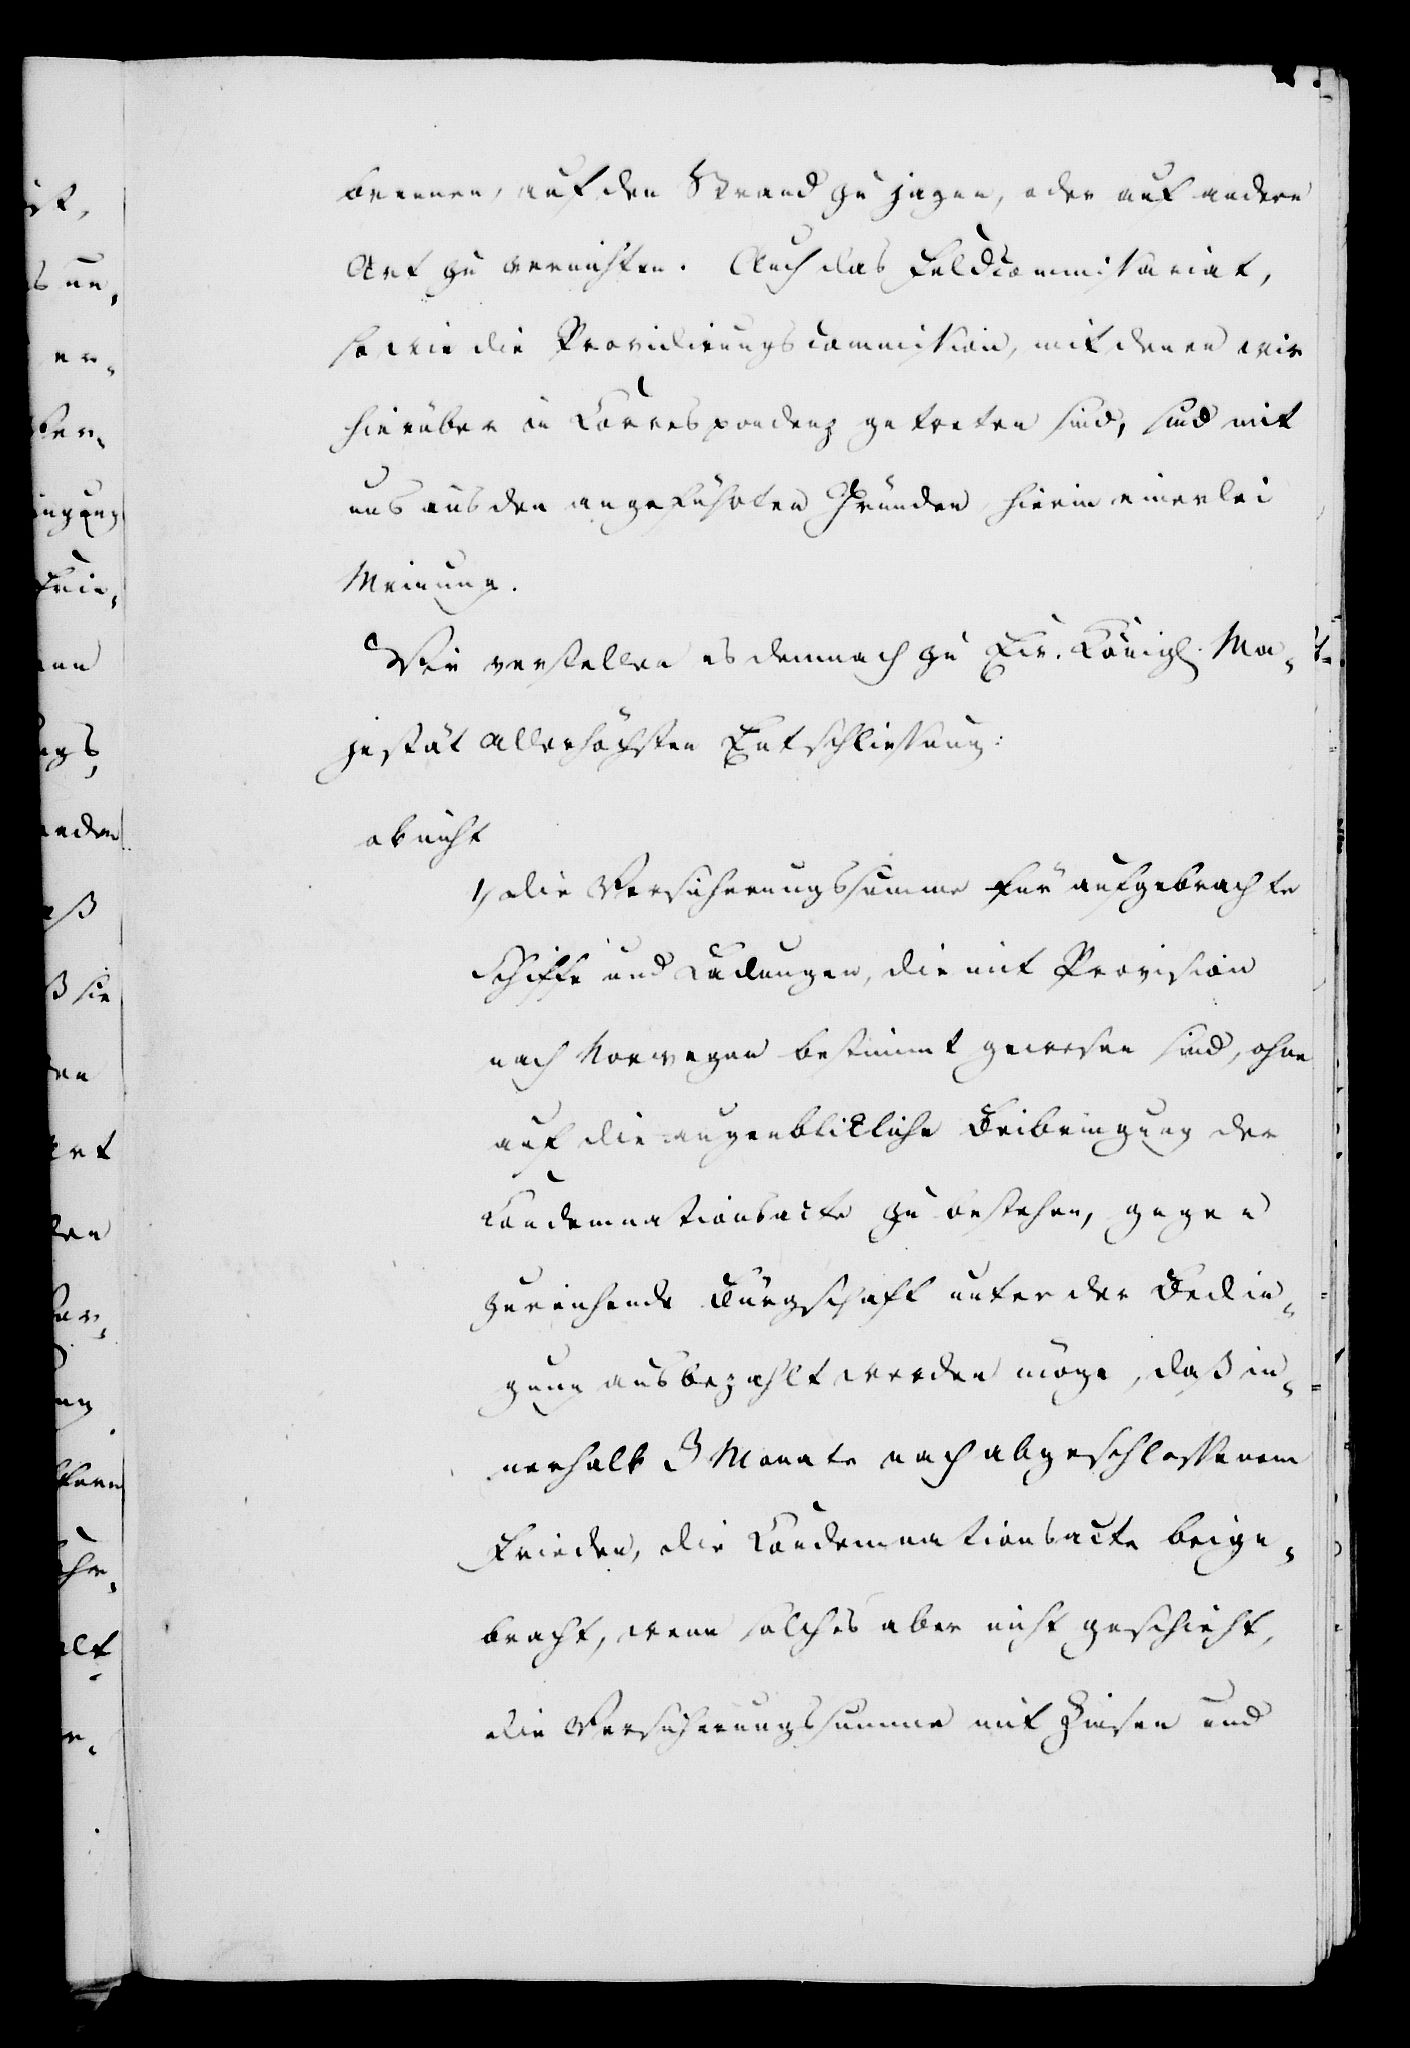 brennen, auf den Strand zu jagen, oder auf andere
Art zu vernichten. Auch das Feldcommissariat,
so wie die Providirungscommission, mit denen wir
hierüber in Correspondenz getreten sind, sind mit
uns aus den angeführten Gründen hierin einerlei
Meinung.
Wir verstellen es demnach zu Ew. Königl. Ma-
jestät allerhöchsten Entschliessung:
ob nicht
1) die Versicherungssumme für aufgebrachte
Schiffe und Ladungen, die mit Provision
nach Norwegen bestimmt gewesen sind, ohne
auf die augenblickliche Beibringung der
Condemnationsacte zu bestehen, gegen
zureichende Bürgschaft unter der Bedin-
gung ausbezahlt werden möge, daß in-
nerhalb 3 Monate nach abgeschlossenem
Frieden, die Condemnationsacte beige-
bracht, wenn solches aber nicht geschieht,
die Versicherungssumme mit Zinsen und